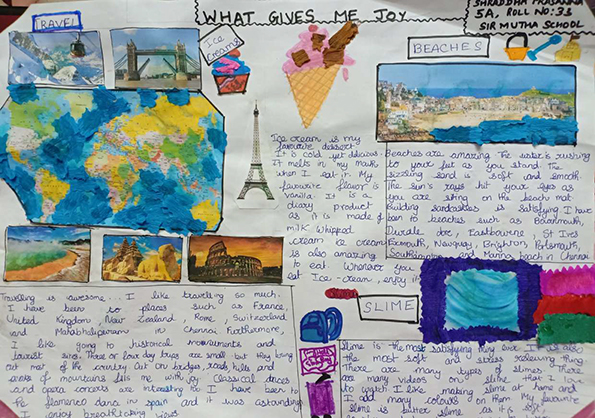 WHAT GIVES ME JOY
SHRADDHA PRASANNA
5A, ROLL NO:33
SIR MUTHA SCHOOL
TRAVEL
Ice
Creams
BEACHES
Ice cream is my
favourite dessert.
It is cold yet delicious.
It melts in my mouth
when I eat it. My
favourite flavor is
vanilla. It is a
dairy product
as it is made of
milk. Whipped
cream ice cream
is also amazing
to eat. Whenever you
eat Ice-cream, enjoy it
Beaches are amazing. The water is rushing
to your feet as you stand. The
sizzling sand is soft and smooth.
The sun's rays hit your eyes as
you are sitting on the beach mat.
Building sandcastles is satisfying. I have
been to beaches such as Bournmouth,
Durdle dore, Eastbourne, St Ives
Exmouth, Newquay, Brighton, Portsmouth,
and Marina beach in Chennai
Travelling is awesome... I like travelling so much.
I have been to places such as France,
United Kingdom, New Zealand, Rome, Switzerland
Mahabalipuram in Chennai. Furthermore,
I like going to historical monuments and
tourist sites. Three or four day trips are small but they bring
out most of the country. Cut on bridges, roads, hills and
areas of mountains fills me with joy. Classical dances
and opera concerts are interesting as I have been to
the flamenco dance in Spain and it was astounding.
I enjoy breathtaking views
SLIME
Slime is the most satisfying thing ever. It is also
the most soft and stress relieving thing.
There are many types of slimes. There
are many videos on slime that I love
to watch. I like making slime at home and
I add many colours on them. My favourite
slime is butter slime as it is soft.